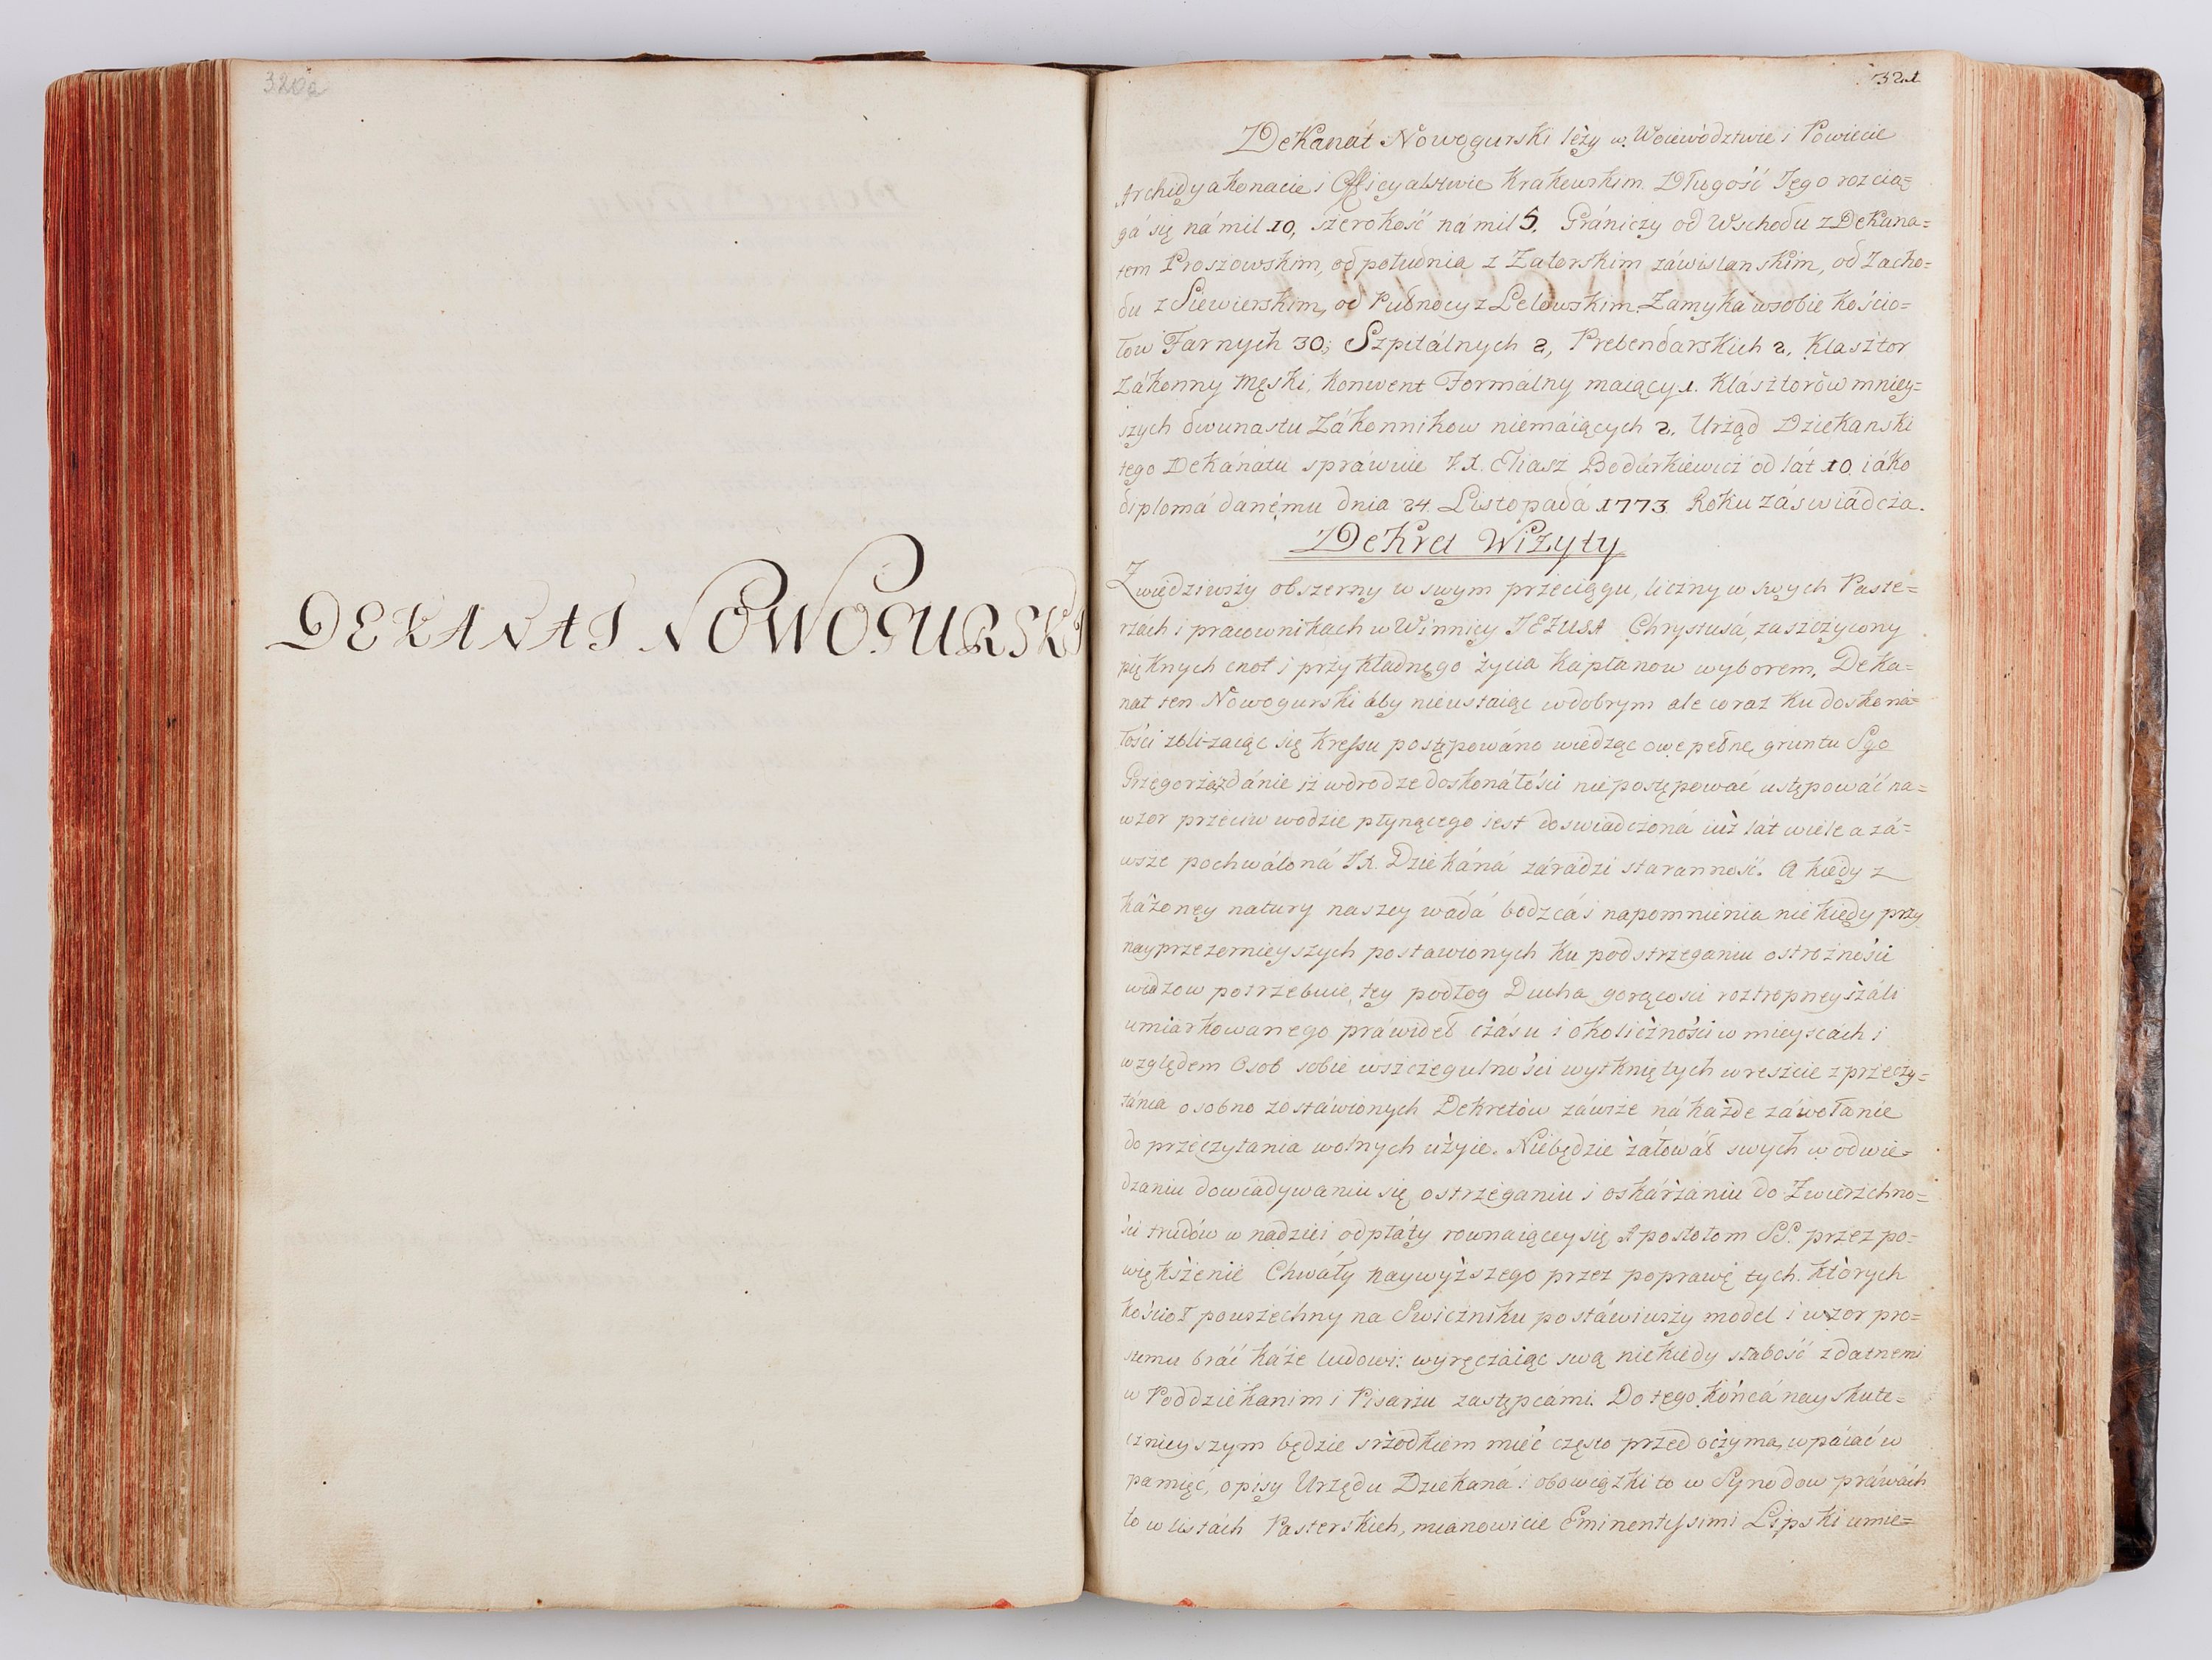 320a
DEKANAT NOWOGURSKI
321
Dekanát Nowogurski leży w Woiewodztwie i Powiecie
Archidyakonacie i Officyalstwie Krakowskim. Długość Iego rozcią=
gá się ná mil 10, szerokość ná mil 5. Grániczy od Wschodu z Dekana=
tem Proszowskim, od południa z Zatorskim záwislanskim, od Zacho=
du z Siewierskim, od Pułnocy z Lelowskim. Zamyká w sobie kościo=
łow Farnych 30; Szpitálnych 2, Prebendarskich 2. Klasztor
Zákonny Męski, konwent Formálny maiący 1. Klásztorów mniey=
szych dwunastu Zákonnikow niemáiących 2. Urząd Dziekanski
tego Dekánatu spráwuie X. Eliasz Bodurkiewicz od lát 10. iáko
diplomá danęmu dnia 24. Listopadá 1773. Roku záświádcza.
Dekret Wizyty
Zwiedziwszy obszerny w swym przeciągu, liczny w swych Paste=
rzách i pracownikach w Winnicy JEZUSA Chrystusá, zaszczycony
pięknych cnot i przykładnęgo życia kápłanow wyborem, Deka=
nat ten Nowogurski áby nieustaiąc w dobrym ale coraz ku doskona=
łości zbliżaiąc się kressu postępowáno wiedząc owe pełne gruntu Sgo
Grzegorza zdánie iż w drodze doskonáłości niepostępować ustępowáć na=
wzor przeciw wodzie płynącego iest doswiadczoná iuż lát wiele a zá=
wsze pochwáloná X. Dziekáná zárádzi staranność. A kiedy z
káżoney natury naszey wádá bodzcá i napomnienia niekiędy przy
nayprzezornieyszych postawionych ku podstrzeganiu ostrożności
widzow potrzebuie, tey podłog Ducha gorącosci roztropney száli
umiarkowanego práwideł czásu i okoliczności w mieyscách i
względem Osob sobie wszczegulności wytkniętych wreszcie z przeczy=
tánia osobno zostáwionych Dekretów záwsze ná każde záwołanie
do przeczytania wolnych użyie. Niebędzie żáłowáł swych w odwie=
dzaniu dowiadywaniu się ostrzeganiu i oskárżániu do Zwierzchno=
ści trudów w nadziei odpłáty rownaiącey się Apostołom SS. przez po=
większenie Chwáły naywyższego przez poprawę tych. których
kościoł powszechny na Swieczniku postáwiwszy model i wzor pro=
stemu bráć káże ludowi: wyręczáiąc swą niekiedy słabość zdatnemi
w Poddziekanim i Pisarzu zastępcámi. Do tego końcá nayskute=
cznieyszym będzie srzodkiem mieć często przed oczyma, wpáiać w
pamięć, opisy Urzędu Dziekaná i obowiązki to w Synodow práwách
to w listách Pasterskich, mianowicie Eminentyssimi Lipski umie=